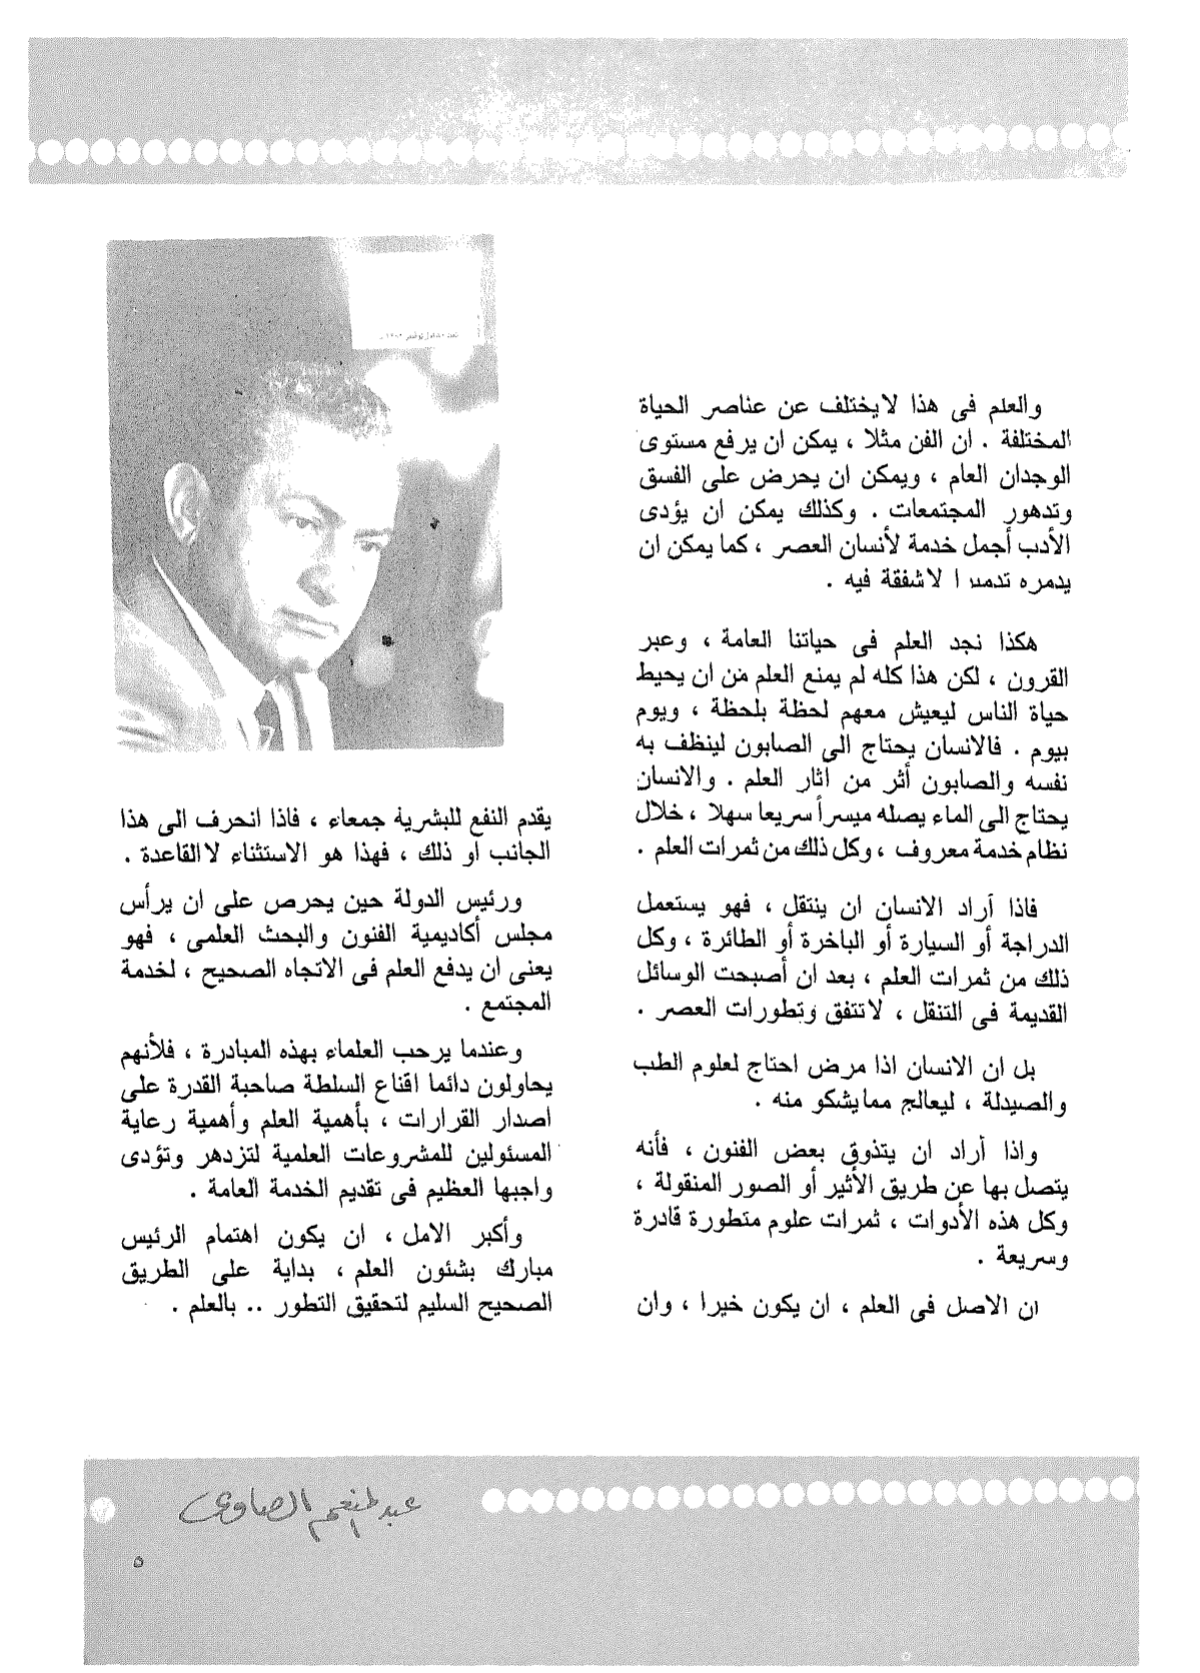 والعلم فى هذا لايختلف عن عناصر الحياة
المختلفة . ان الفن مثلا ، يمكن ان يرفع مستوى
الوجدان العام ، ويمكن ان يحرض على الفسق
وتدهور المجتمعات . وكذلك يمكن ان يؤدى
الأدب أجمل خدمة لأنسان العصر ، كما يمكن ان
يدمره تدميرا لاشفقة فيه .
هكذا نجد العلم فى حياتنا العامة ، وعبر
القرون ، لكن هذا كله لم يمنع العلم من ان يحيط
حياة الناس ليعيش معهم لحظة بلحظة ، ويوم
بيوم . فالانسان يحتاج الى الصابون لينظف به
نفسه والصابون أثر من اثار العلم . والانسان
يحتاج الى الماء يصله ميسرأ سريعا سهلا ، خلال
نظام خدمة معروف ، وكل ذلك من ثمرات العلم .
فاذا أراد الانسان ان ينتقل ، فهو يستعمل
الدراجة أو السيارة أو الباخرة أو الطائرة ، وكل
ذلك من ثمرات العلم ، بعد ان أصبحت الوسائل
القديمة فى التنقل ، لاتتفق وتطورات العصر .
بل ان الانسان اذا مرض احتاج لعلوم الطب
والصيدلة ، ليعالج ممايشكو منه .
واذا أراد ان يتذوق بعض الفنون ، فأنه
يتصل بها عن طريق الأثير أو الصور المنقولة ،
وكل هذه الأدوات ، ثمرات علوم متطورة قادرة
وسريعة .
ان الاصل فى العلم ، ان يكون خيرا ، وان
يقدم النفع للبشرية جمعاء ، فاذا انحرف الى هذا
الجانب او ذلك ، فهذا هو الاستثناء لا القاعدة .
ورئيس الدولة حين يحرص على ان يرأس
مجلس أكاديمية الفنون والبحث العلمى ، فهو
يعنى ان يدفع العلم فى الاتجاه الصحيح ، لخدمة
المجتمع .
وعندما يرحب العلماء بهذه المبادرة ، فلأنهم
يحاولون دائما اقناع السلطة صاحبة القدرة على
اصدار القرارات ، بأهمية العلم وأهمية رعاية
المسئولين للمشروعات العلمية لتزدهر وتؤدى
واجبها العظيم فى تقديم الخدمة العامة .
وأكبر الامل ، ان يكون اهتمام الرئيس
مبارك بشئون العلم ، بداية على الطريق
الصحيح السليم لتحقيق التطور .. بالعلم .
عبدالمنعم الصاوى
٥